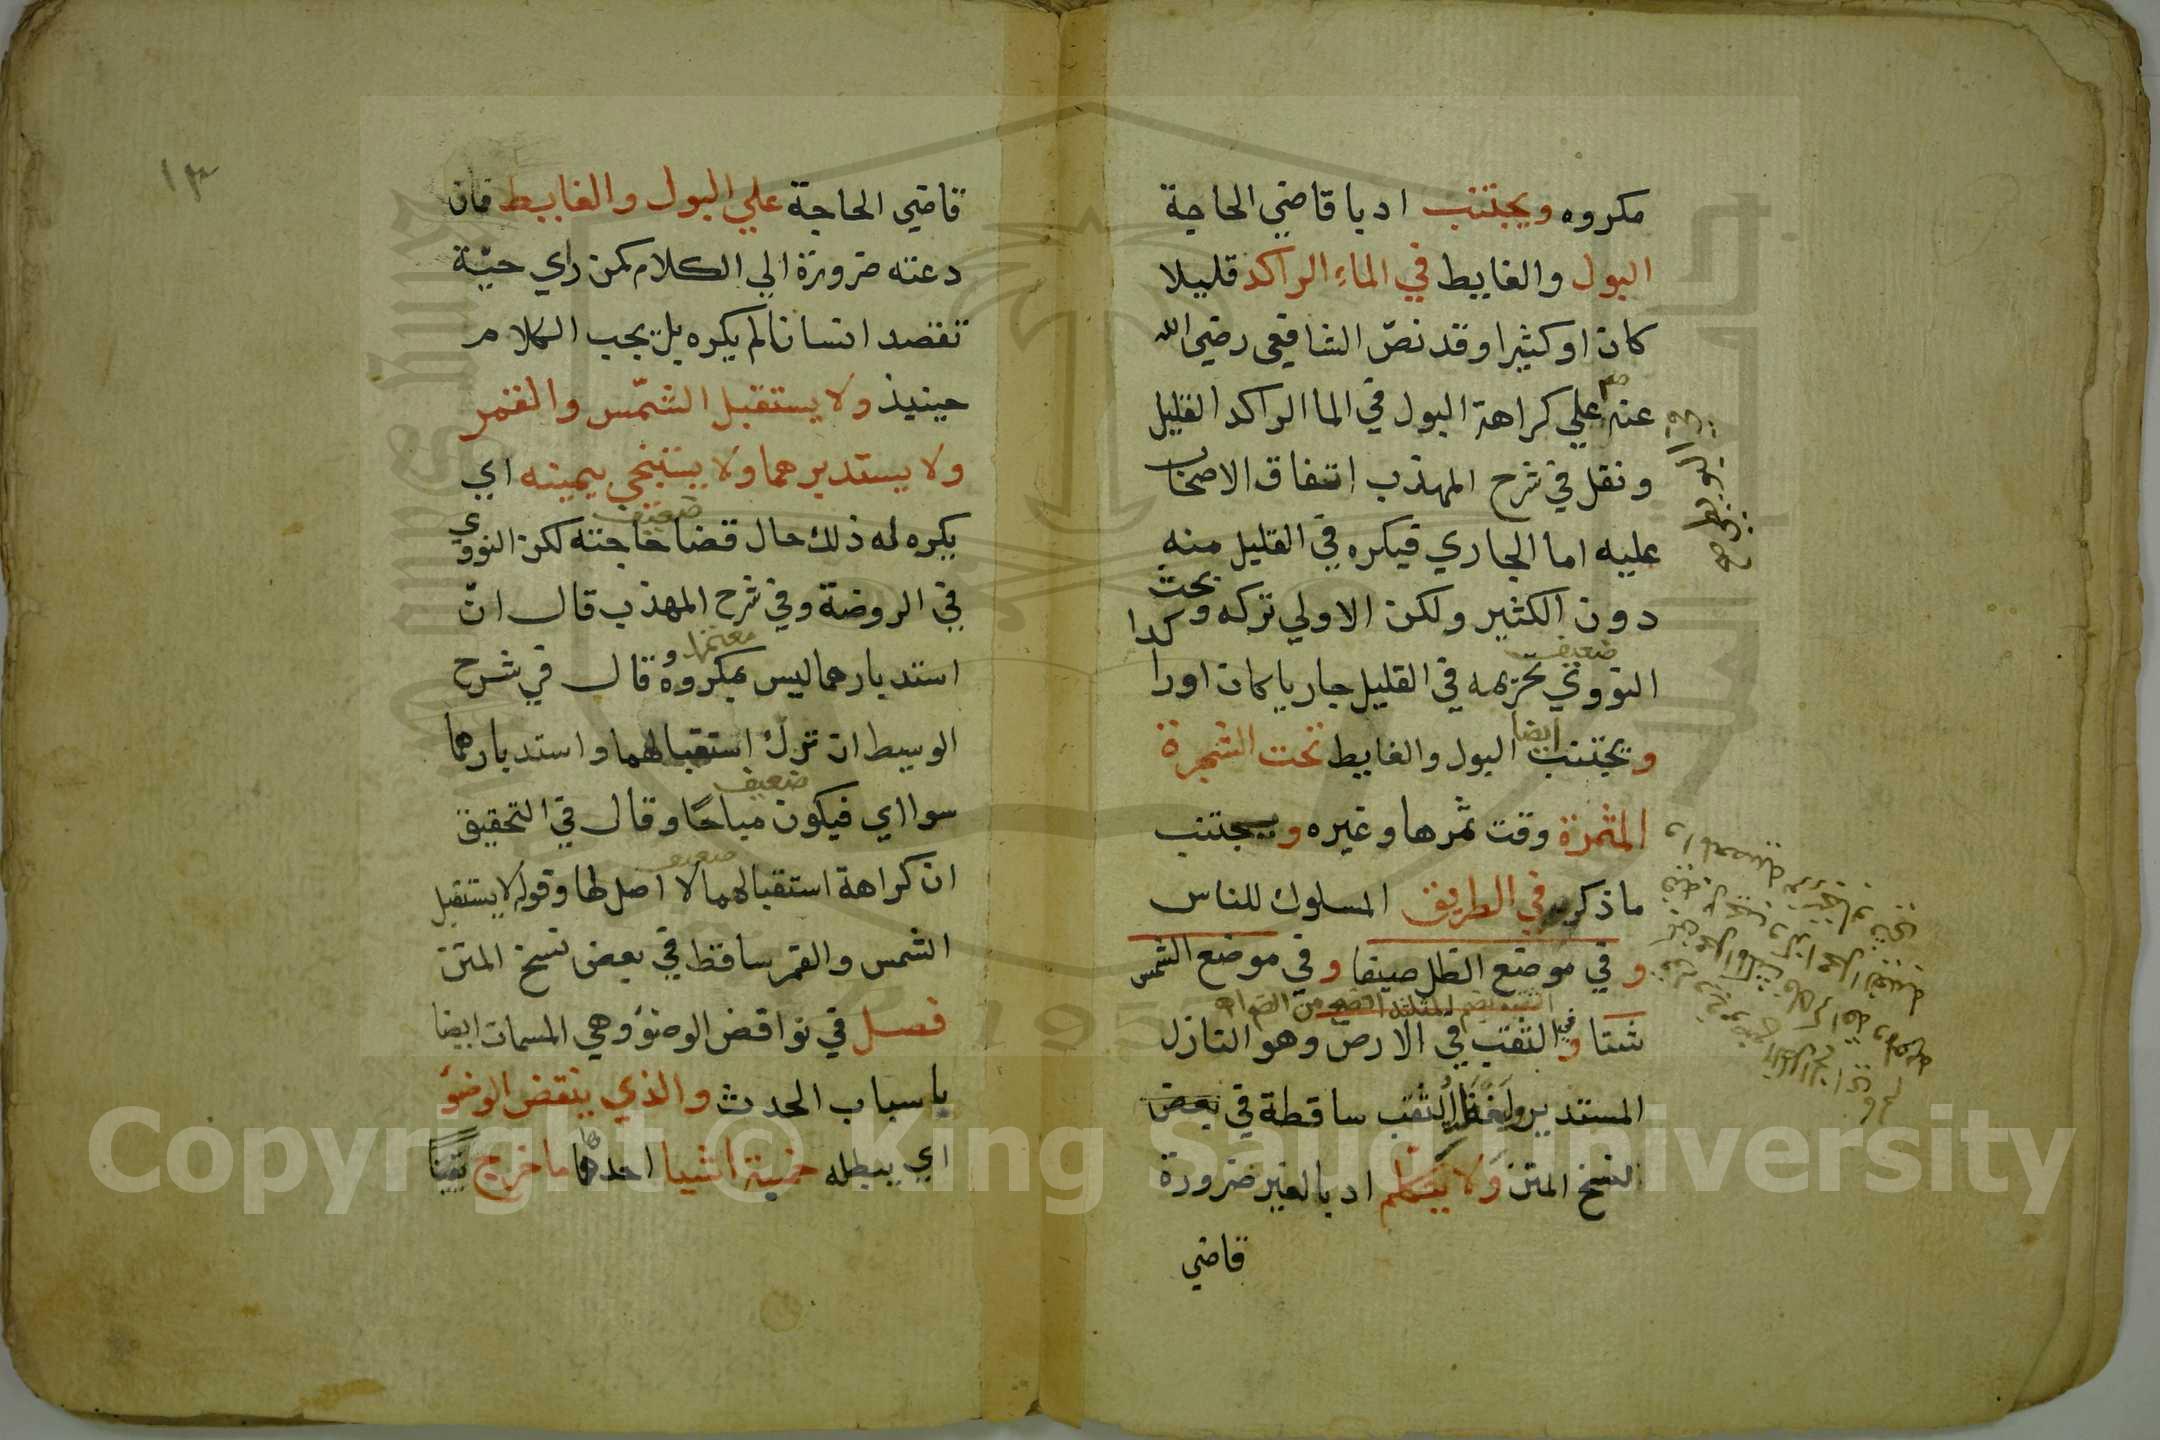 مكروه ويجتنب ادبا قاضي الحاجة
البول والغايط في الماء الراكد قليلا
كان او كثيرا وقد نصّ الشافعى رضي الله
عنه علي كراهة البول في الما الراكد القليل
ونقل في شرح المهذب اتفاق الاصحاب
عليه اما الجاري فيكره في القليل منه
دون الكثير ولكن الاولي تركه وبحث
النووي تحريمه في القليل جاريا كان او راكدا
ضعيف
ويجتنب ايضا البول والغايط تحت الشجرة
المثمرة وقت ثمرها وغيره ويجتنب
ما ذكر في الطريق المسلوك للناس
و في موضع الظل صيفا و في موضع الشمس
شتا و في الثقب في الارض وهو النازل
المستدير ولفظ الثقب ساقطة في بعض
نسخ المتن ولا يتكلم ادبا لغير ضرورة
قاضي
١٣
قاضي الحاجة علي البول والغايط فان
دعته ضرورة الي الكلام كمن راي حيّة
تقصد انسانا لم يكره بل يجب الكلام
حينيذ ولا يستقبل الشمّس والقمر
ولا يستدبرهما ولا يستنجي بيمينه اي
ضعيف
يكره له ذلك حال قضا حاجته لكن النووي
في الروضة وفي شرح المهذب قال انّ
معتمد
استدبارهما ليس بمكروه وقال في شرح
الوسيط ان ترك استقبالهما واستدبارهما
ضعيف
سوا اي فيكون مباحًا وقال في التحقيق
ضعيف
ان كراهة استقبالهما لا اصل لها وقوله لا يستقبل
الشمس والقمر ساقط في بعض نسخ المتن
فصل في نواقض الوضؤ وهي المسمات ايضا
باسباب الحدث والذي ينقض الوضؤ
اي يبطله خمسة اشيا احدها ما خرج
Copyright © King Saud University
1957